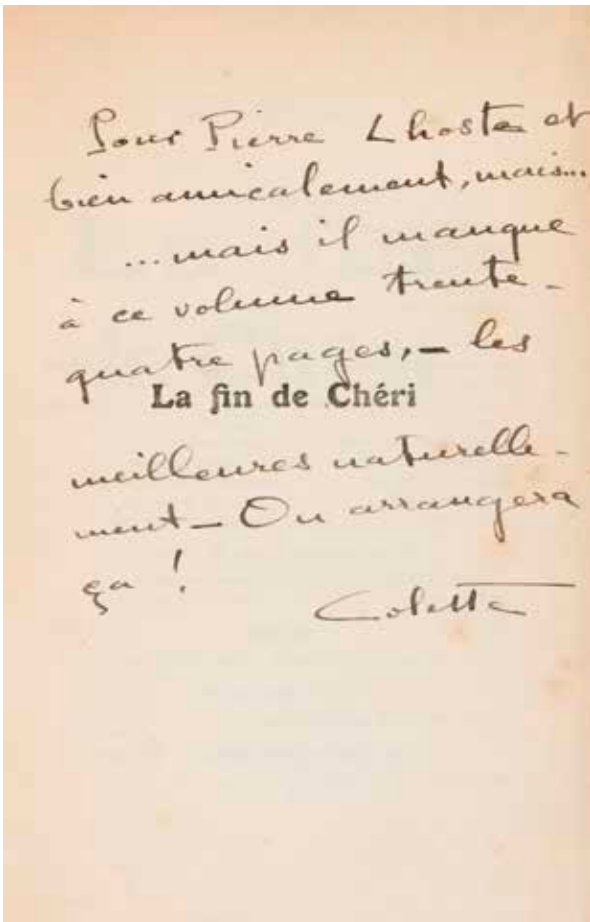 Pour Pierre Lhoste et
bien amicalement, mais...
...mais il manque
à ce volume trente-
quatre pages, – les
La fin de Chéri
meilleures naturelle-
ment – On arrangera
ça !
Colette